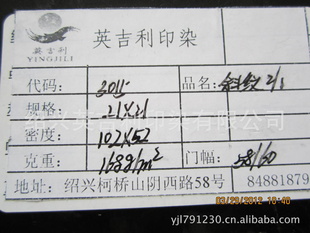 英吉利
YINGJILI
英吉利印染
代码: 3011 品名: 斜纹 2/1
规格: 21X21
密度: 102X52
克重: 168g/m² 门幅: 58/60
地址: 绍兴柯桥山阴西路58号 84881879
03/29/2012 10:40
yjl791230.cn.alibaba.com